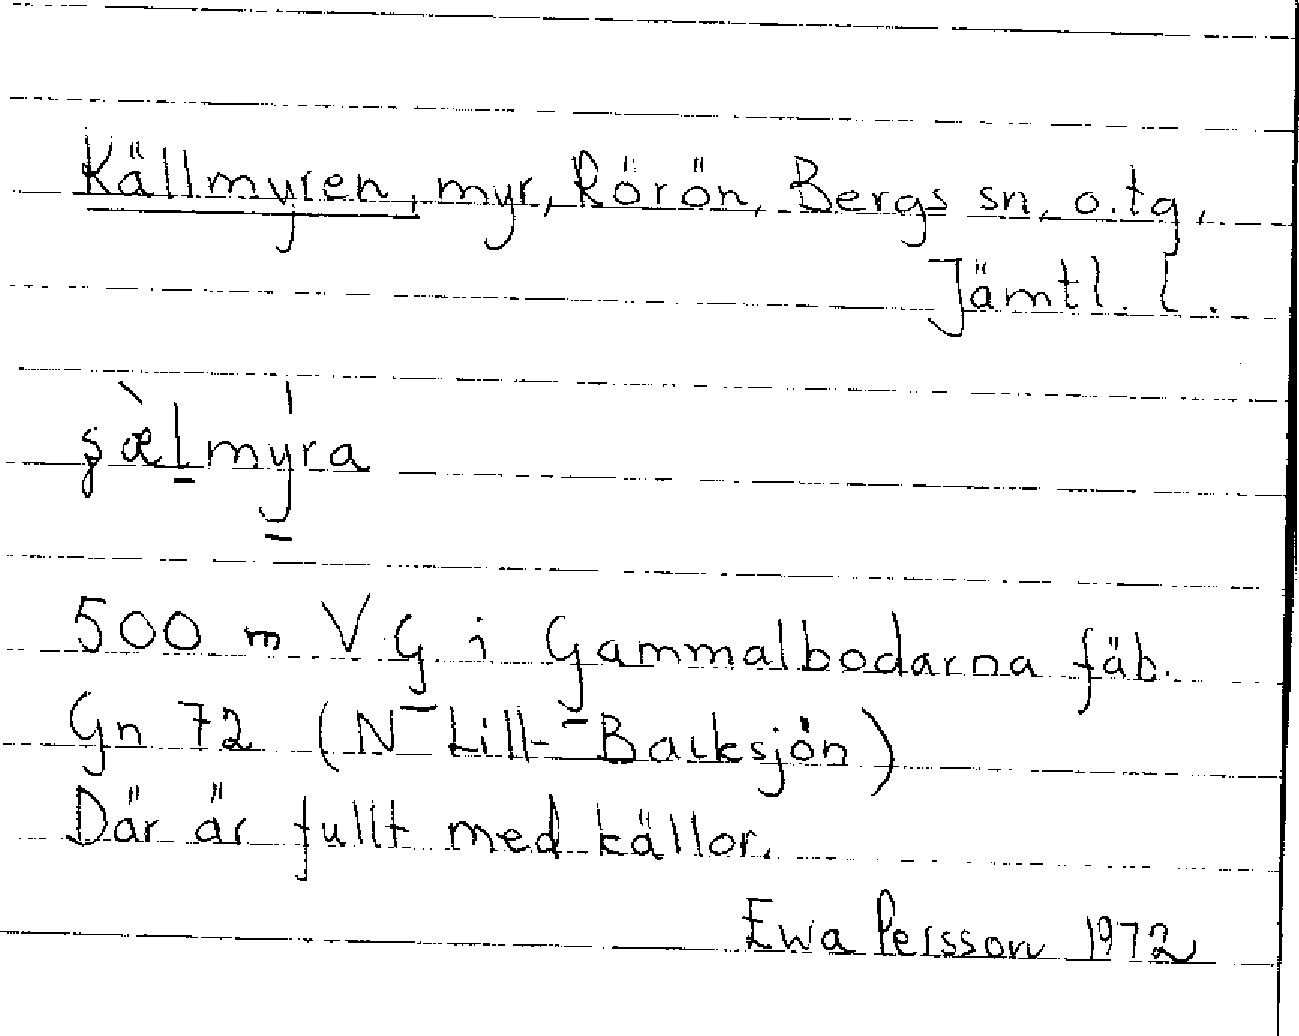 Källmyren, myr, Rörön, Bergs sn. o. tg,
Jämtl. l.
ʂæ̀l̠my̠ra
500 m V G̠ i G̠ammalbodarna fäb.
Gn 72 (N Lill-Backsjön)
Där är fullt med källor.
Ewa Persson 1972